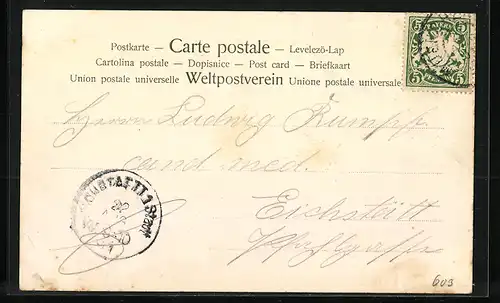 Postkarte — Carte postale — Levelezö-Lap
Cartolina postale — Dopisnice — Post card — Briefkaart
Union postale universelle Weltpostverein Unione postale universale
5 BAYERN 5
5 PFENNIG 5
Herrn Ludwig Rumpf
cand med.
Eichstätt
609